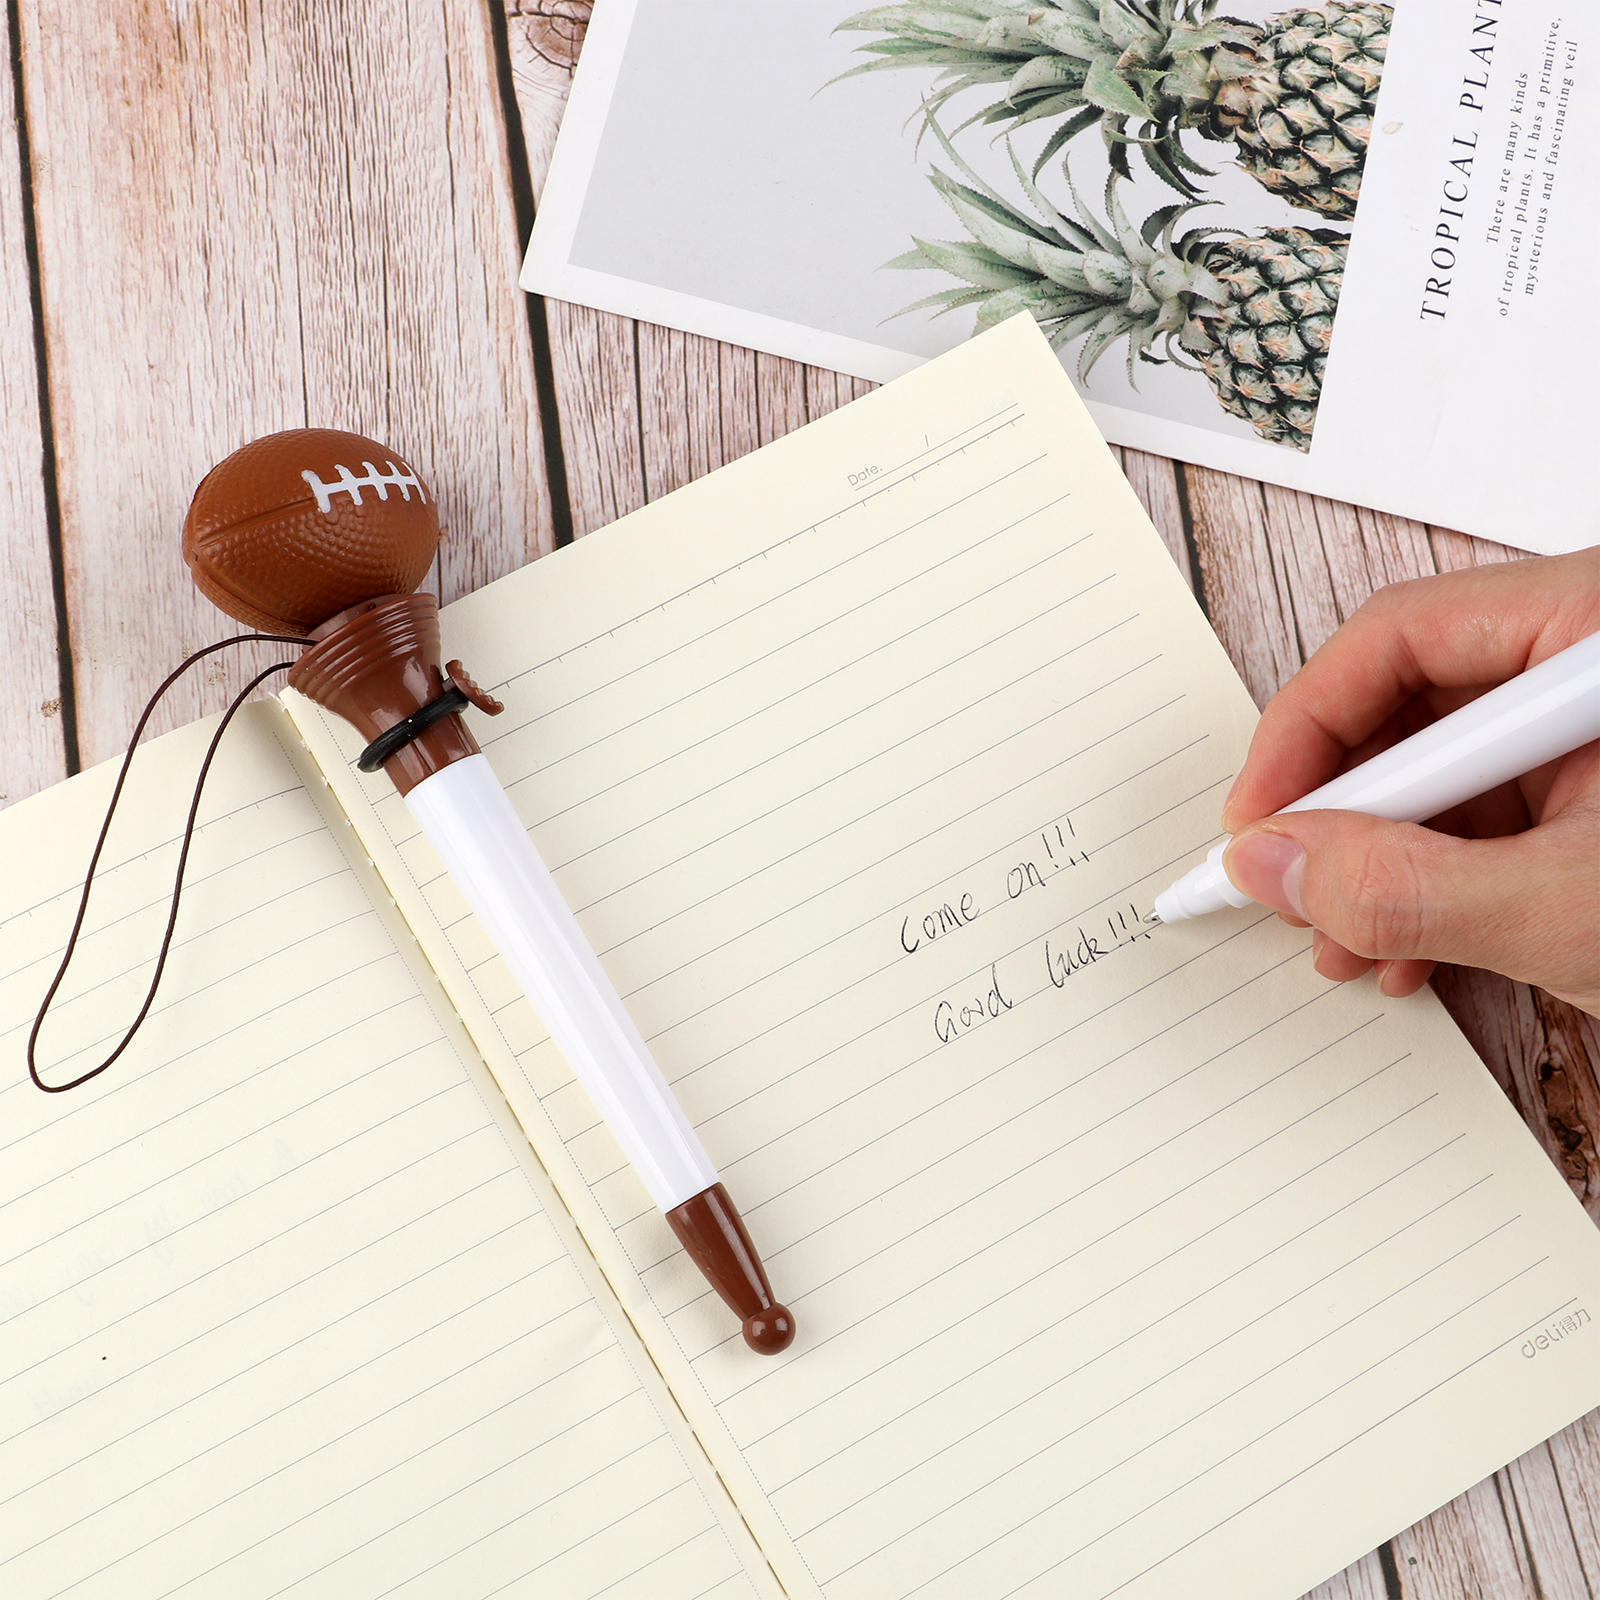 TROPICAL PLANT
There are many kinds
of tropical plants. It has a primitive,
mysterious and fascinating veil
Date.
Come on!!!
Good luck!!!
deli得力